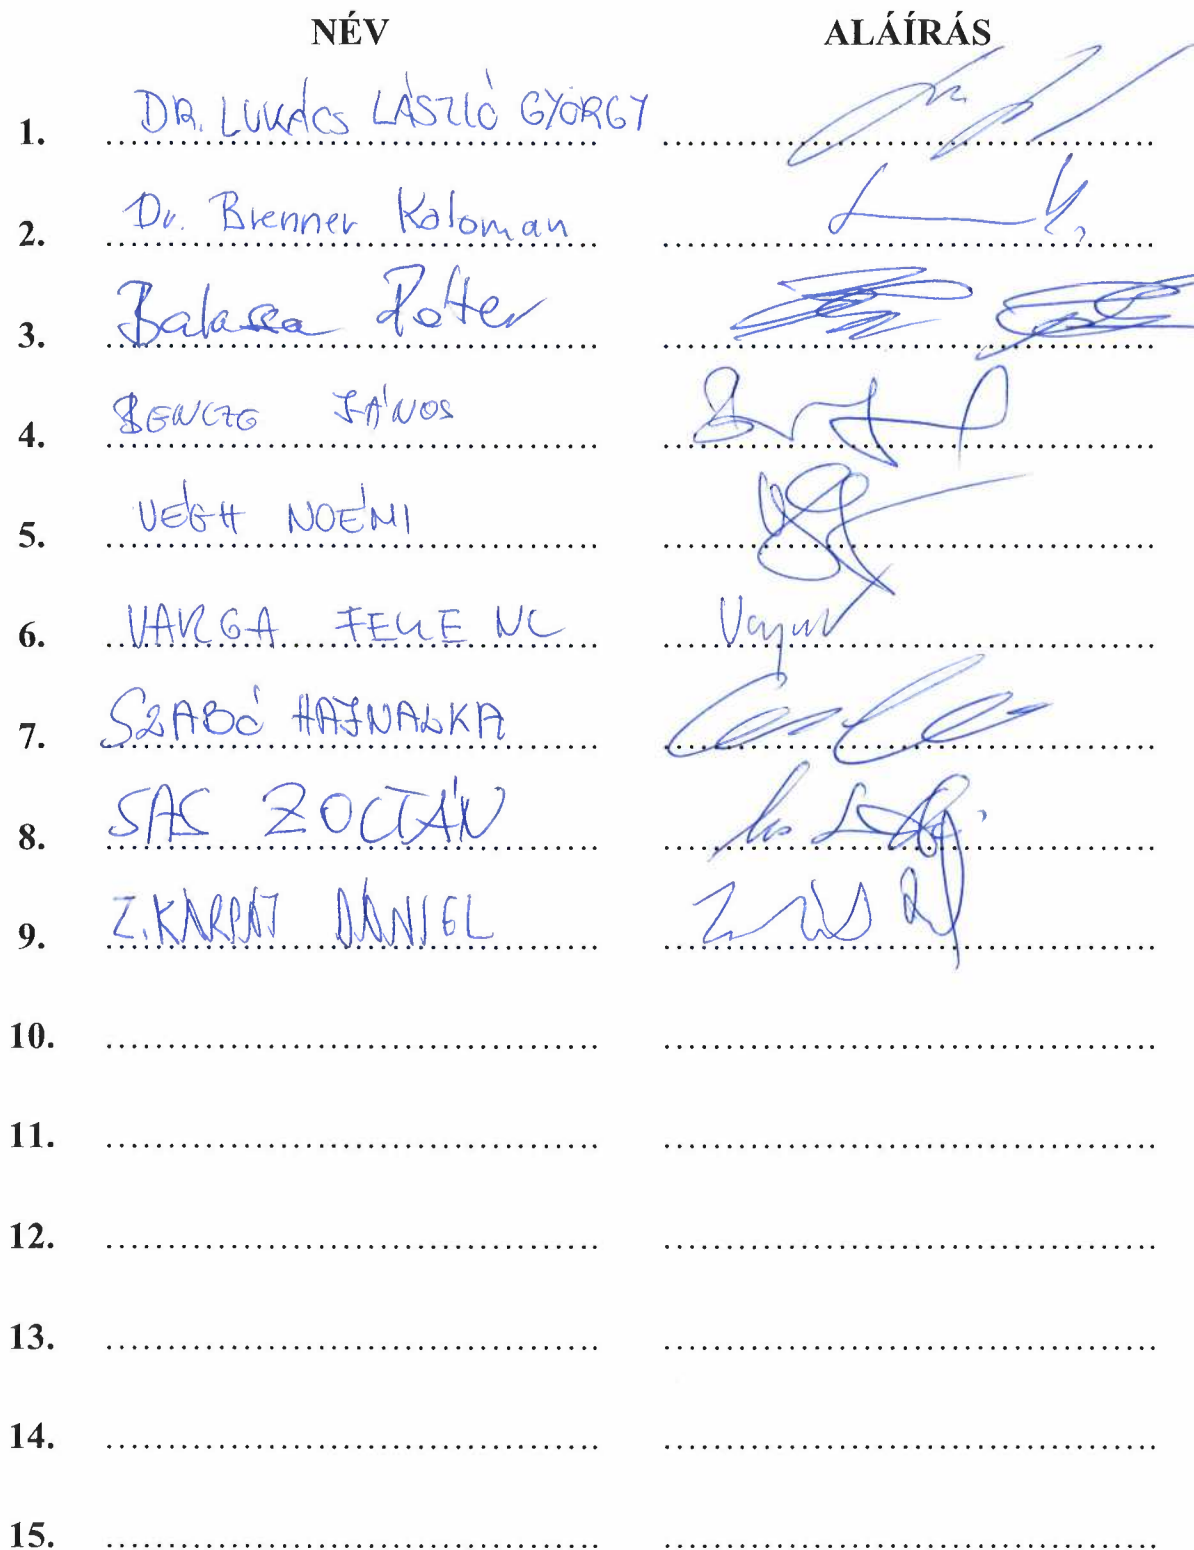 NÉV ALÁÍRÁS
1. DR. LUKÁCS LÁSZLÓ GYÖRGY
2. Dr. Brenner Koloman
3. Balassa Péter
4. BENCZE JÁNOS
5. VÉGH NOÉMI
6. VARGA FERENC
7. SZABÓ HAJNALKA
8. SAS ZOLTÁN
9. Z. KÁRPÁT DÁNIEL
10.
11.
12.
13.
14.
15.